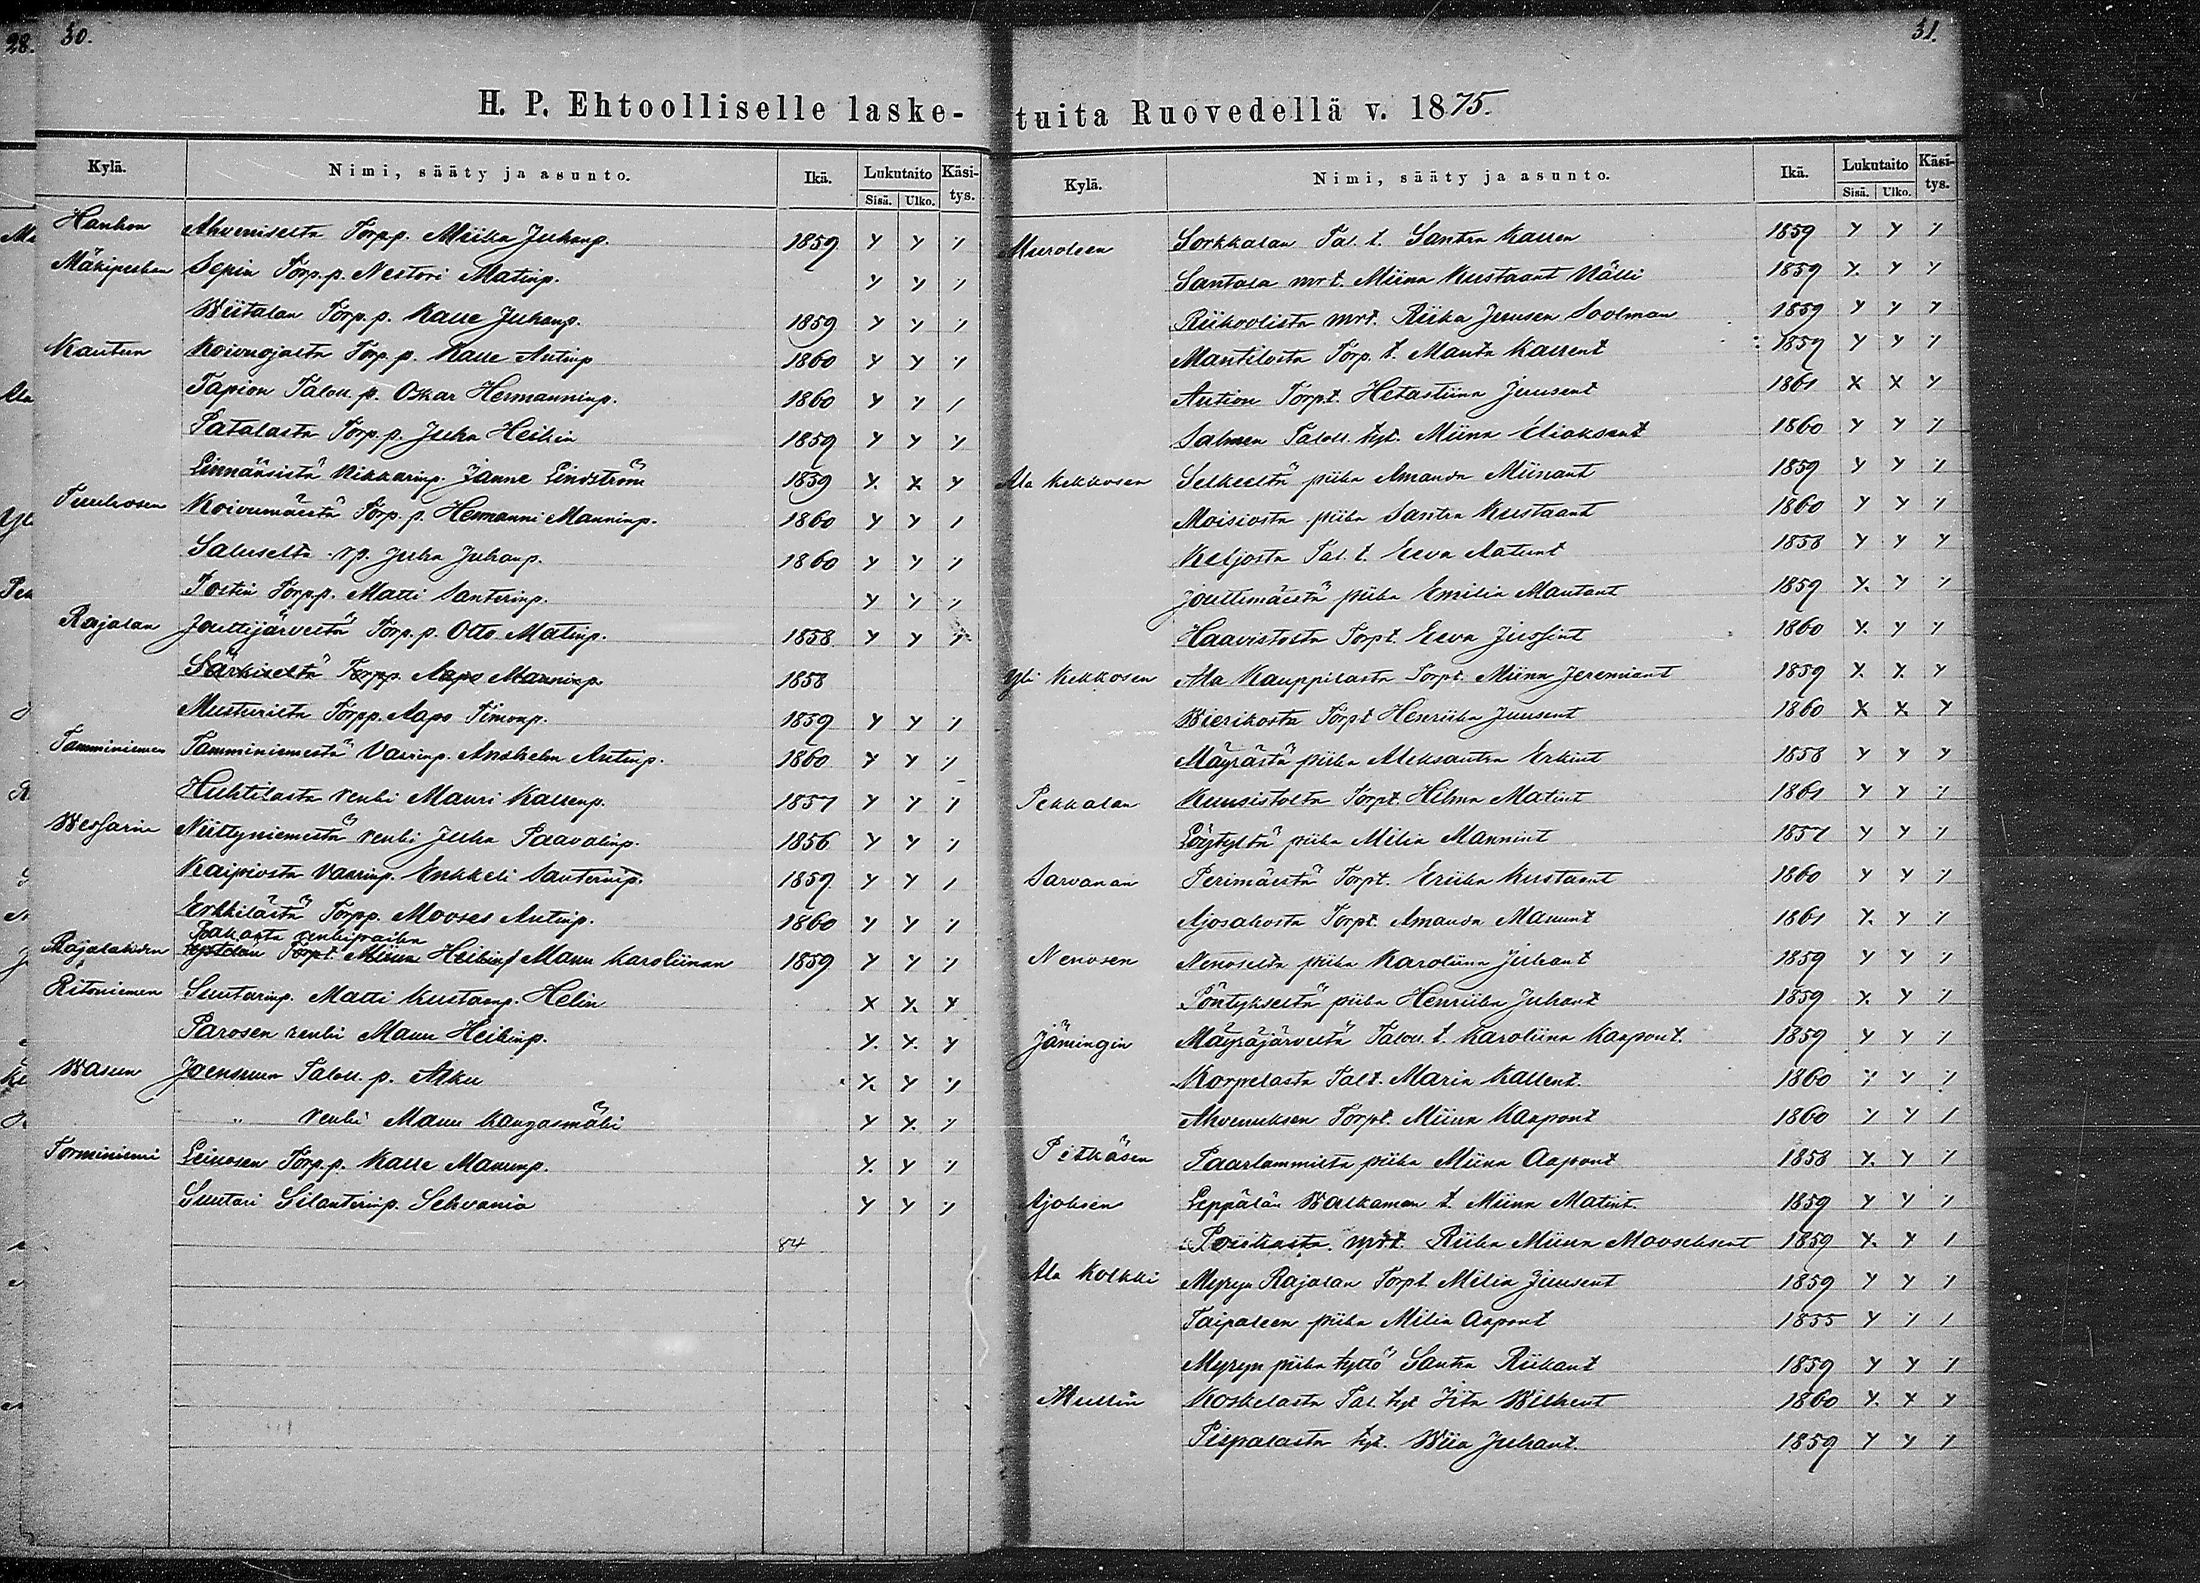 28. 30.
H. P. Ehtoolliselle laske-
Kylä. Nimi, sääty ja asunto. Ikä. Lukutaito Käsi-
Sisä. Ulko. tys.
Hanhon Ahveniselta Torp.p. Miika Juhanp. 1859 y y y
Mäkipeskan Sepin Torp.p. Nestori Matinp. y y y
Wiitalan Torp.p. Kalle Juhanp. 1859 y y y
Kautun Koivuojasta Torp.p. Kalle Antinp 1860 y y y
Tapion Talon.p. Oskar Hermanninp. 1860 y y /
Patalasta Torp.p. Juha Heikin 1859 y y y
Linnänsistä Nikkarinp. Janne Lindström 1859 y. x y
Turhosen Koivumäestä Torp.p. Hermanni Manninp. 1860 y y /
Saluselta rp. Juha Juhanp. 1860 y y /
Postin Torp.p. Matti Santerinp. y y y
Rajalan Jouttijärveltä Torp.p. Otto Matinp. 1858 y y y
Särkiseltä Torpp. Aapo Manninp. 1858
Musturilta Torpp. Aapo Timonp. 1859 y y y
Tamminiemen Tamminiemestä Vaarinp. Anshelm Antinp. 1860 y y y
Huhtilasta renki Mauri Kallenp. 1857 y y y
Wessarin Niittyniemestä renki Juha Paavalinp. 1856 y y y
Kaipiosta Vaarinp. Enkkeli Santerinp. 1859 y y /
Erkkilästä Torpp. Mooses Antinp. 1860 y y y
renkipoika
Rajalahden Torpt Miina Heikint Manu Karoliinan 1859 y y y
Ritoniemen Suutarinp. Matti Kustaanp. Helin x y. y
Parosen renki Manu Heikinp. y. y. y
Wasun Joensuun Talon.p. Aku y. y y
" renki Manu Kangasmäki y y. y
Torminiemi Leinosen Torp.p. Kalle Manunp. y. y y
Suutari Silanterinp. Sehvania y y y
84
31.
tuita Ruovedellä v. 1875.
Kylä. Nimi, sääty ja asunto. Ikä. Lukutaito Käsi-
Sisä. Ulko. tys.
Muroleen Sorkkalan Tal.t. Santra Kallen 1859 y y y
Santala mrt. Miina Kustaant Nälli 1859 y. y y
Riikoolista mrt. Riika Juusen Soolman 1859 y y y
Mantilosta Torp.t. Manta Kallent 1859 y y y
Aution Torpt. Hetastiina Juusent 1861 x x y
Salmen Talon.tyt. Miina Eliaksent 1860 y y y
Ala Kekkosen Selkeeltä piika Amanda Miinant 1859 y y y
Moisiosta piika Santra Kustaant 1860 y y y
Keljosta Tal.t. Eeva Aatunt 1858 y y y
Jouttimäestä piika Emilia Mantant 1859 y. y y
Haavistosta Torpt. Eeva Jussint 1860 y. y y
Yli Kekkosen Ala Kauppilasta Torpt. Miina Jeremiant 1859 y. y. y
Wierikosta Torpt Henriika Juusent 1860 x x y
Mäyrästä piika Aleksantra Erkint 1858 y y y
Pekkalan Kuusistolta Torpt. Hilma Matint 1861 y y y
Löytyltä piika Milia Mannint 1857 y y y
Sarvanan Perimäestä Torpt. Eriika Kustaant 1860 y y y
Ajosahosta Torpt. Amanda Manunt 1861 y. y y
Nenosen Nenoselta piika Karoliina Juhant 1859 y y y
Pöntykseltä piika Henriika Juhant 1859 y. y y
Jämingin Mäyräjärveltä Talon.t. Karoliina Kaapont. 1859 y y y
Korpelasta Talt. Maria Kallent. 1860 y y y
Ahvenuksen Torpt. Miina Kaapont 1860 y y /
Pitkäsen Paarlammista piika Miina Aapont 1858 y. y y
Ajoksen Leppälän Walkaman t. Miina Matint. 1859 y y y
mrt. Riika Miina Mooseksent 1859 y. y /
Ala Kolkki Myryn Rajalan Torpt Milia Juusent 1859 y y y
Taipaleen piika Milia Aapont 1855 y y /
Myryn piika tyttö Santra Riikant 1859 y y y
Mustin Koskelasta Tal. tyt Iita Wilhent 1860 y. x y
Pispalasta tyt. Wiia Juhant 1859 y y y